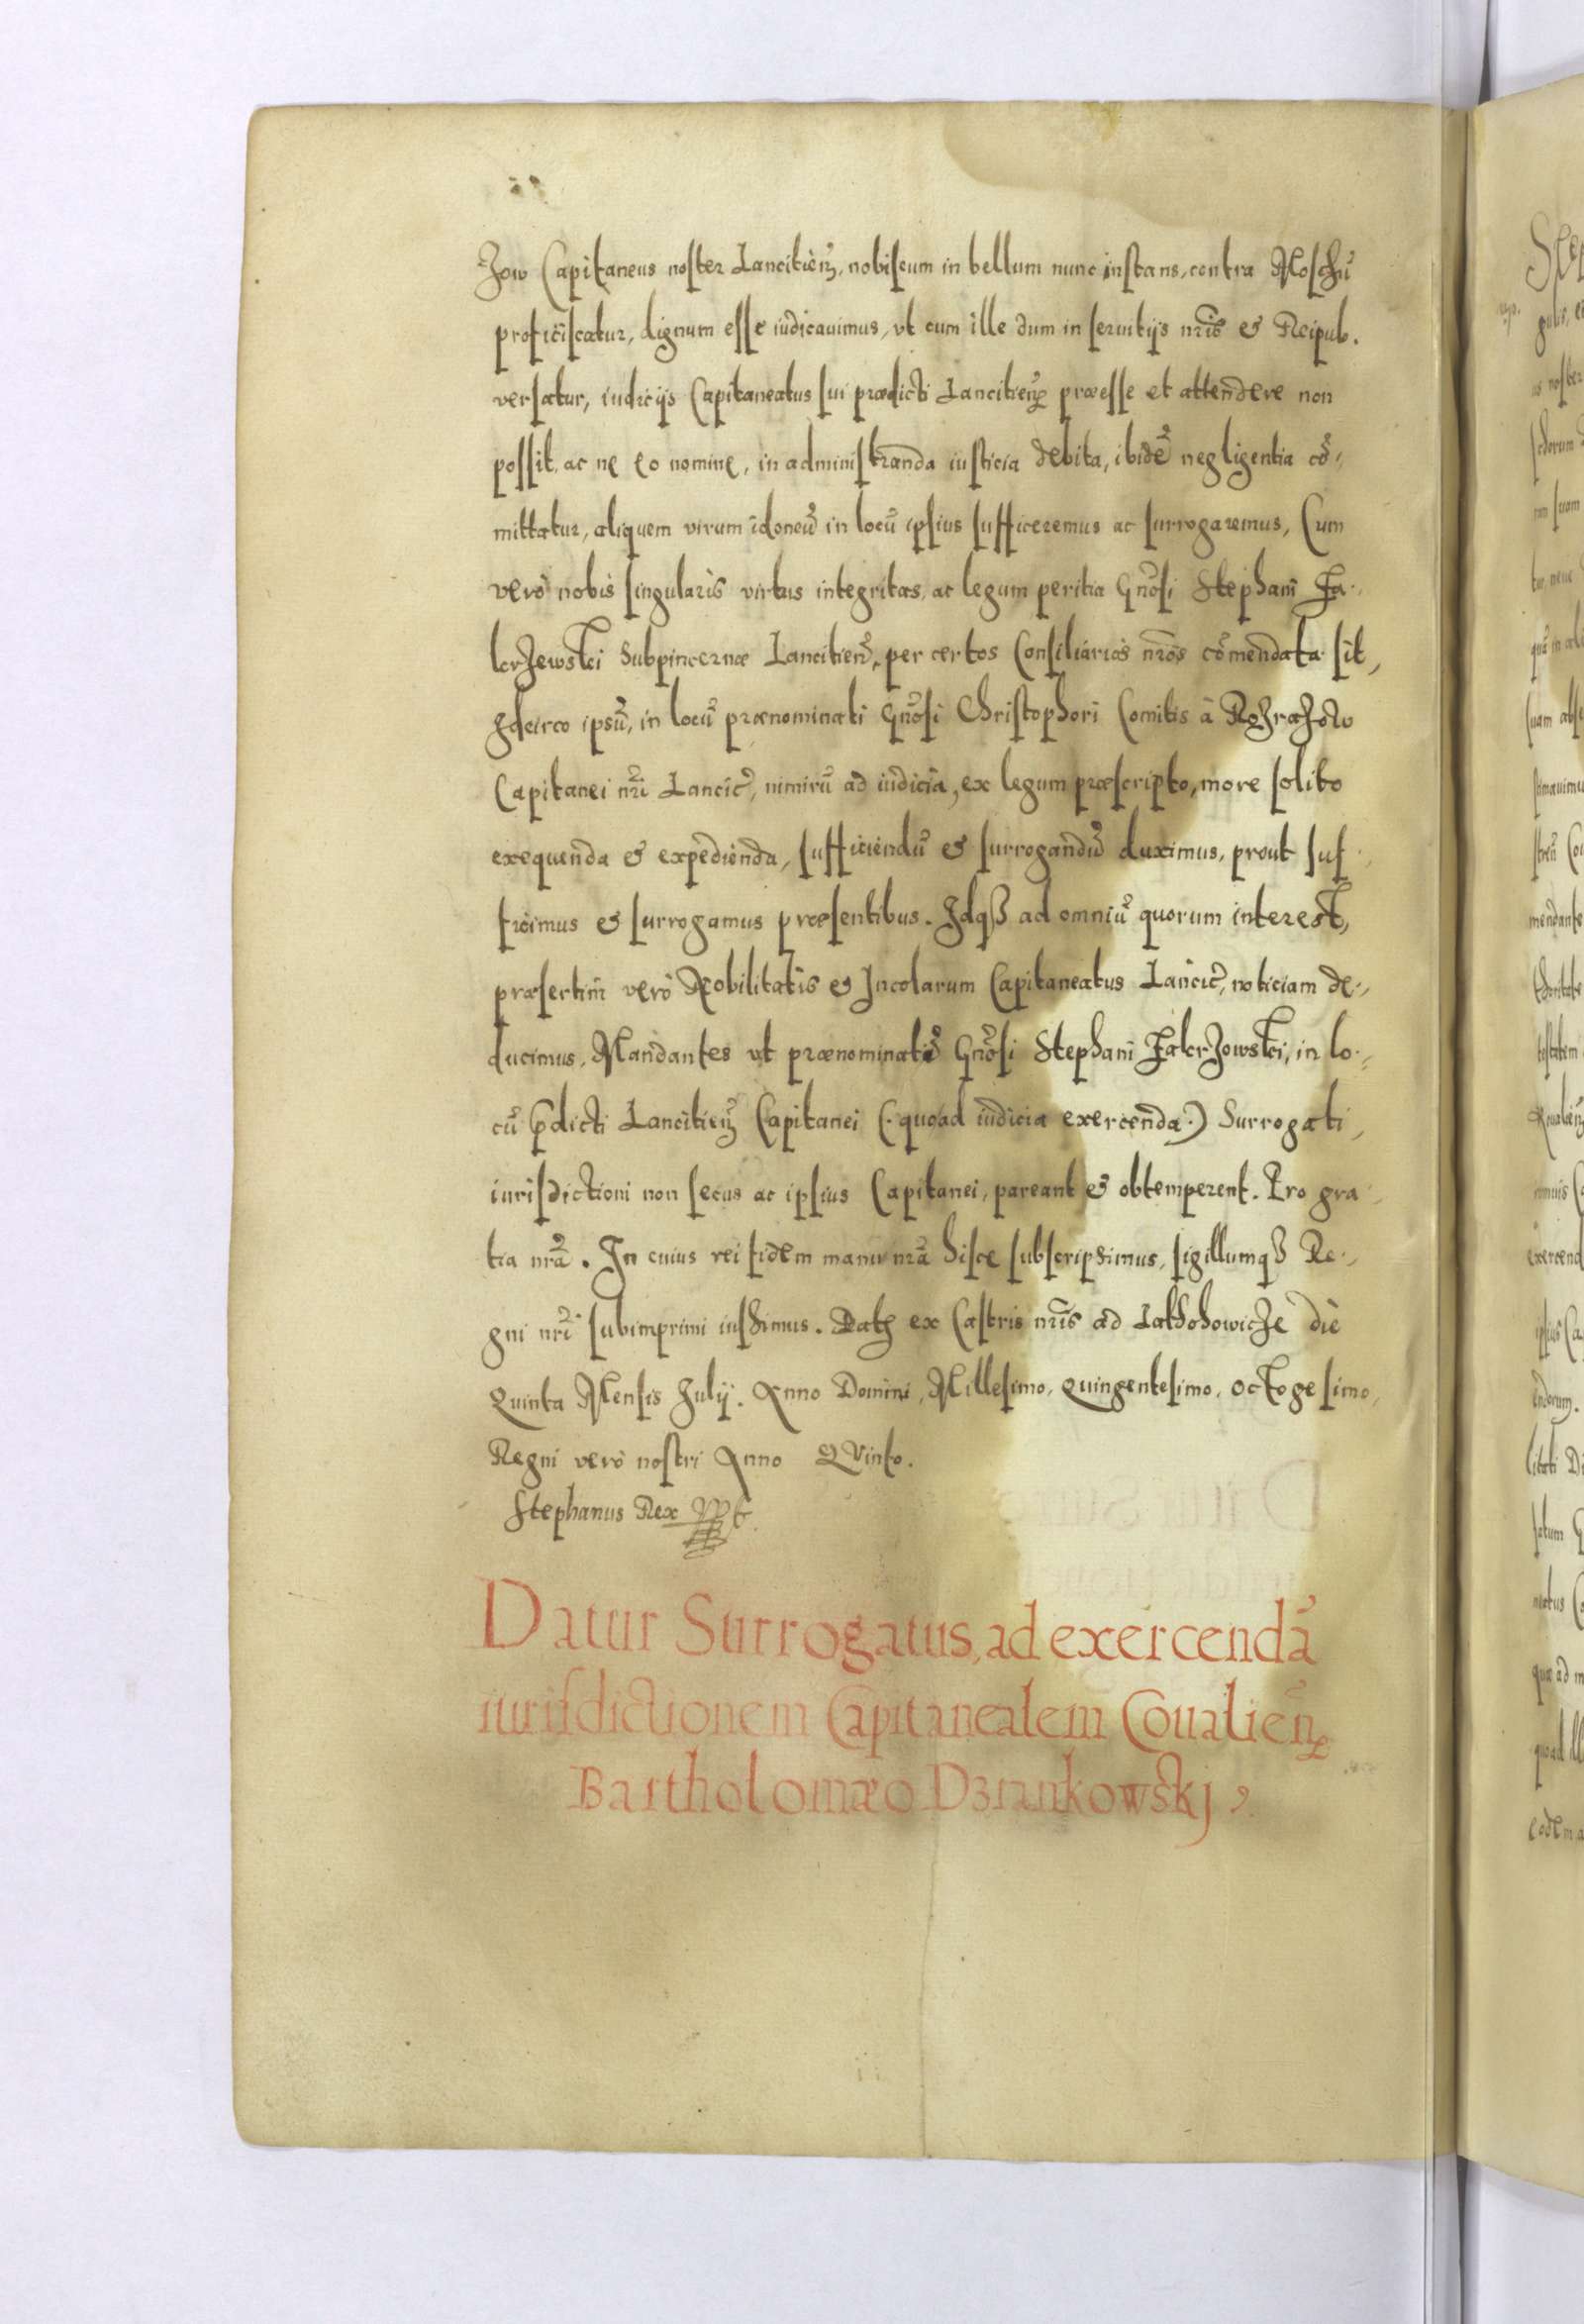 zow Capitaneus noster Lancitień, nobiscum in bellum nunc instans, contra Moschū
proficiscatur, dignum esse iudicauimus, vt cum ille dum in seruitijs nrīs & Reipub.
versatur, iudicijs Capitaneatus sui prædicti Lancitień præesse et attendere non
possit, ac ne eo nomine, in administranda iusticia debita, ibidē negligentia cō-
mittatur, aliquem virum idoneū in locū ipsius sufficeremus ac surrogaremus, Cum
verò nobis singularis virtus integritas, ac legum peritia Gnōsi Stephani Za-
krzewski Subpincernæ Lancitień, per certos Consiliarios nrōs cōmendata sit,
Idcirco ipsū, in locū prænominati Gnōsi Christophori Comitis à Rozrazow
Capitanei nrī Lancic̄, nimirū ad iudicia, ex legum præscripto, more solito
exequenda & expedienda, sufficiendū & surrogandū duximus, prout suf-
ficimus & surrogamus præsentibus. Idqß ad omniū quorum interest,
præsertim verò Nobilitatis & Incolarum Capitaneatus Lancic̄, noticiam de-
ducimus, Mandantes vt prænominati Gnōsi Stephani Zakrzowski, in lo-
cū p̄dicti Lancitień Capitanei (quoad iudicia exercenda) Surrogati,
iurisdictioni non secus ac ipsius Capitanei, pareant & obtemperent. Pro gra-
tia nrā. In cuius rei fidem manu nrā hisce subscripsimus, sigillumqß Re-
gni nrī subimprimi iussimus. Dat ex Castris nrīs ad die
Quinta Mensis Julij. Anno Domini, Millesimo, Quingentesimo, Octogesimo,
Regni verò nostri Anno Quinto.
Stephanus Rex
Datur Surrogatus, ad exercendā
iurisdictionem Capitanealem Coualień
Bartholomæo Dzrankowskj,